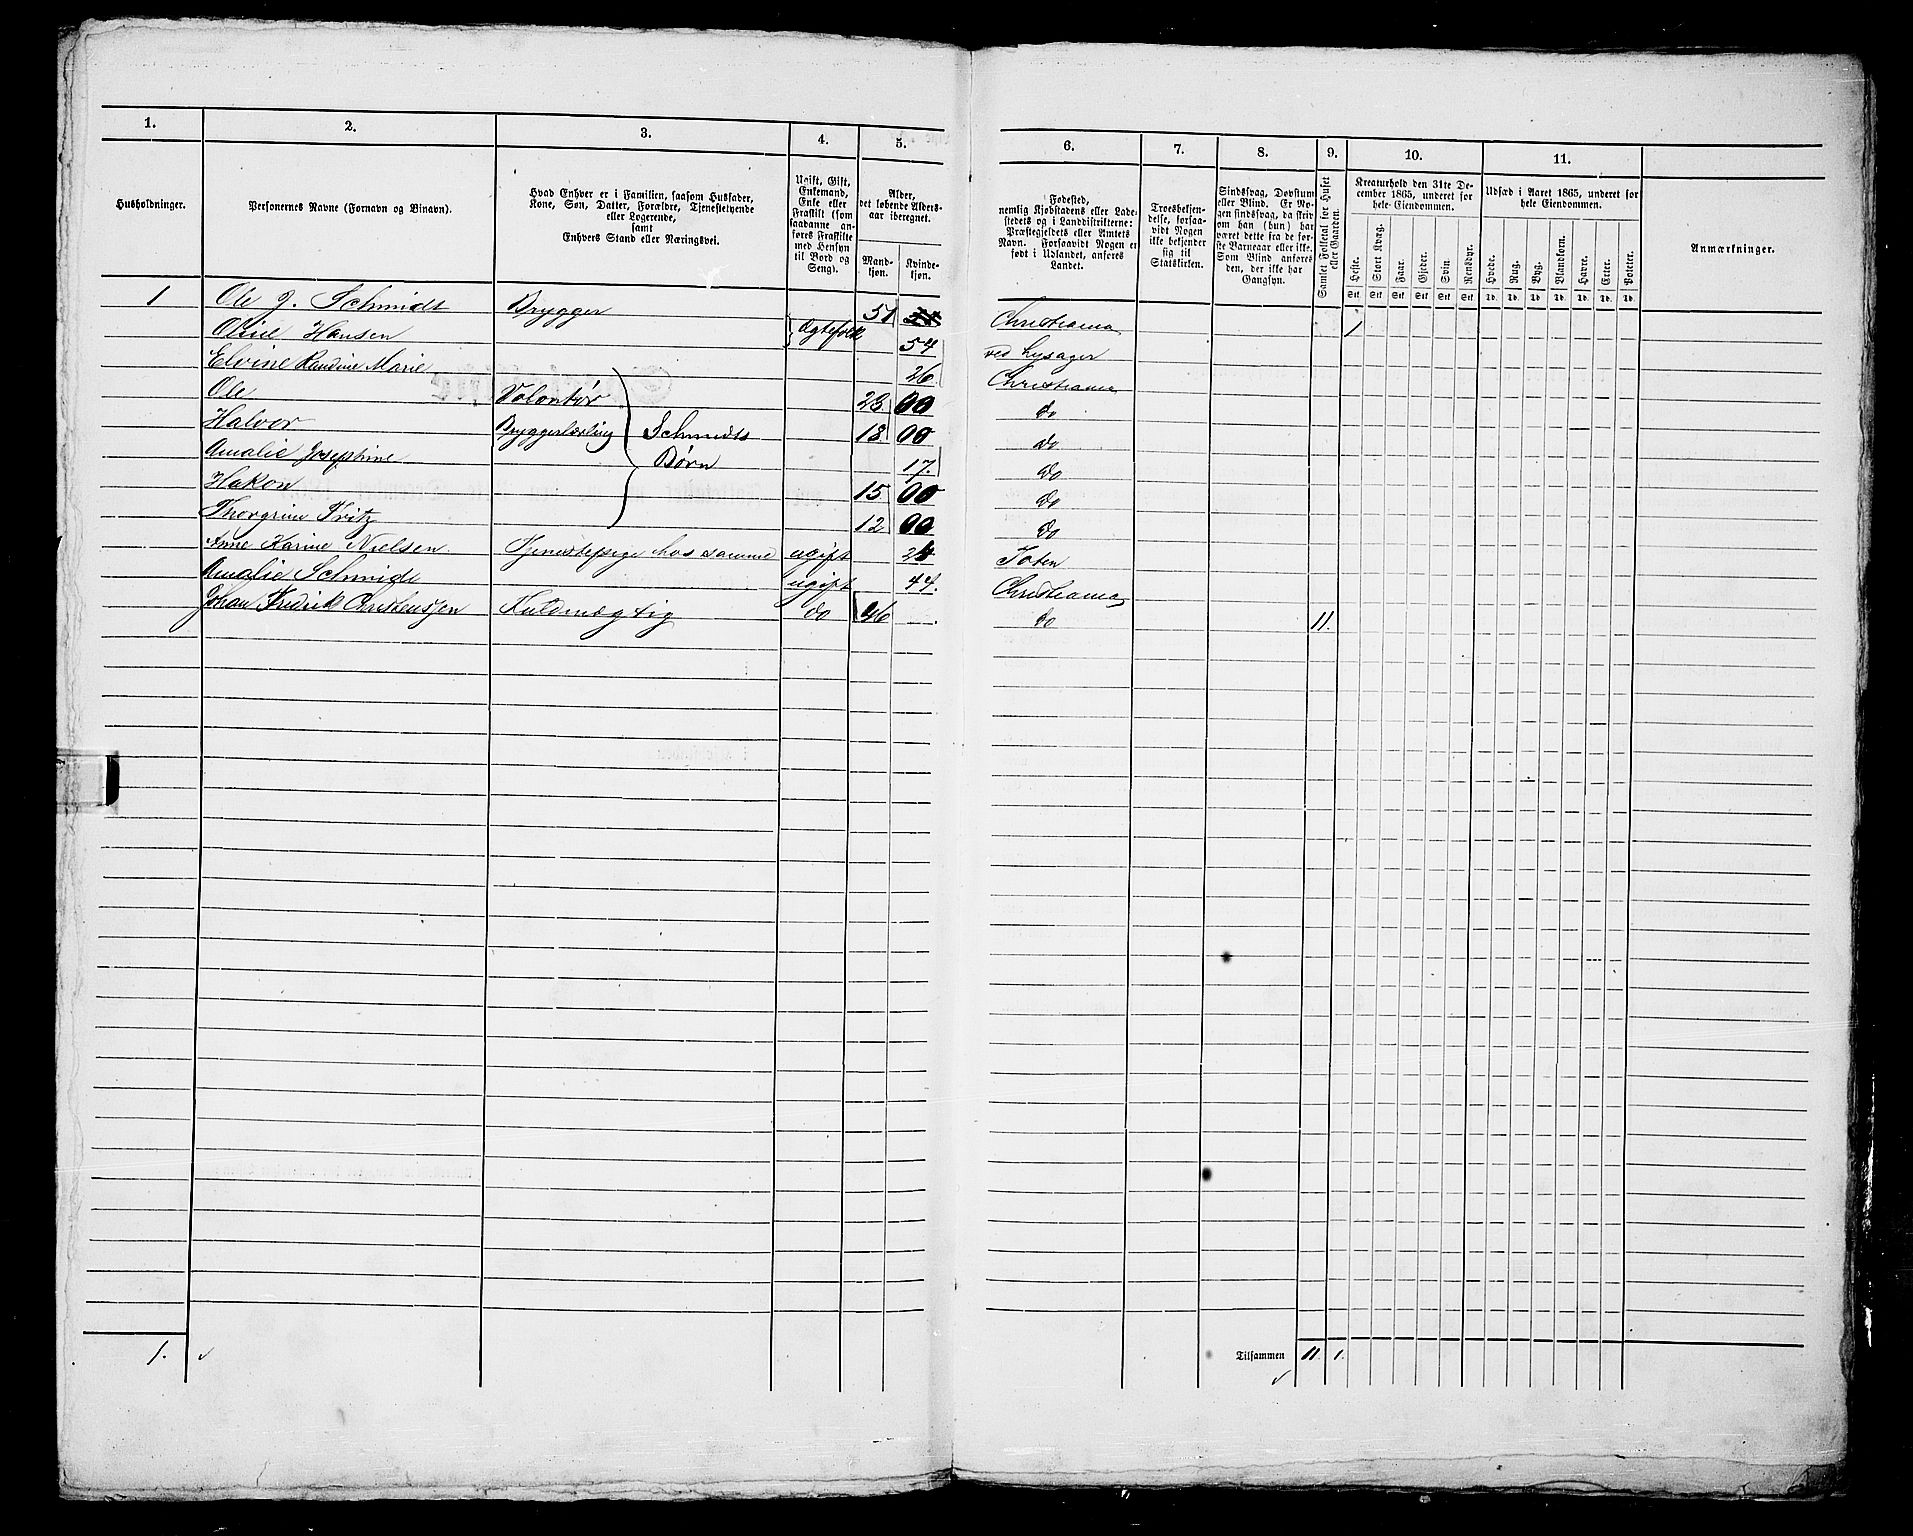 1. 2. 3. 4. 5. 6. 7. 8. 9. 10. 11.
Husholdninger.
Personernes Navne (Fornavn og Binavn).
Hvad Enhver er i Familien, saasom Husfader,
Kone, Søn, Datter, Forældre, Tjenestetyende
eller Logerende,
samt
Enhvers Stand eller Næringsvei.
Ugift, Gift,
Enkemand,
Enke eller
Fraskilt (som
saadanne an-
føres Fraskilte
med Hensyn
til Bord og
Seng).
Alder,
det løbende Alders-
aar iberegnet.
Mand-
kjøn.
Kvinde-
kjøn.
Fødested,
nemlig Kjøbstadens eller Lade-
stedets og i Landdistrikterne:
Præstegjeldets eller Amtets
Navn. Forsaavidt Nogen er
født i Udlandet, anføres
Landet.
Troesbekjen-
delse, forsaa-
vidt Nogen
ikke bekjender
sig til
Statskirken.
Sindssvag, Døvstum
eller Blind. Er No-
gen sindssvag, da skriv
om han (hun) har
været dette fra de før-
ste Barneaar eller ikke.
Som Blind anføres
den, der ikke har
Gangsyn.
Samlet Folketal for Huset
eller Gaarden.
Kreaturhold den 31te De-
cember 1865, underet for
hele Eiendommen.
Heste. Stort Kvæg. Faar. Gjeder. Svin. Rensdyr.
Stk. Stk. Stk. Stk. Stk. Stk.
Udsæd i Aaret 1865, underet for
hele Eiendommen.
Hvede. Rug. Byg. Blandkorn. Havre. Erter. Poteter.
Td. Td. Td. Td. Td. Td. Td.
Anmærkninger.
1 Ole J. Schmidt Brygger 51 Christiania 1
Hansen Ægtefolk 54 ved
Elvine Randine Marie 26 Christiania
Ole Volontør 23 00 do
Halvor Bryggerlærling Schmidts 18 00 do
Amalie Josephine Børn 17. do
Hakon 15 00 do
Thorgrim Fritz 12 00 do
Anne Karine Nielsen Tjenestepige hos samme ugift Toten
Amalie Schmidt ugift 44. Christiania
Johan Fredrik Christenssen Fuldmægtig do 46 do 11.
1.
Tilsammen 11. 1.